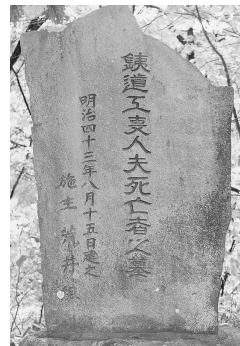 鉄道工事人夫死亡者之墓
明治四十三年八月十五日建之
施主 荒井組